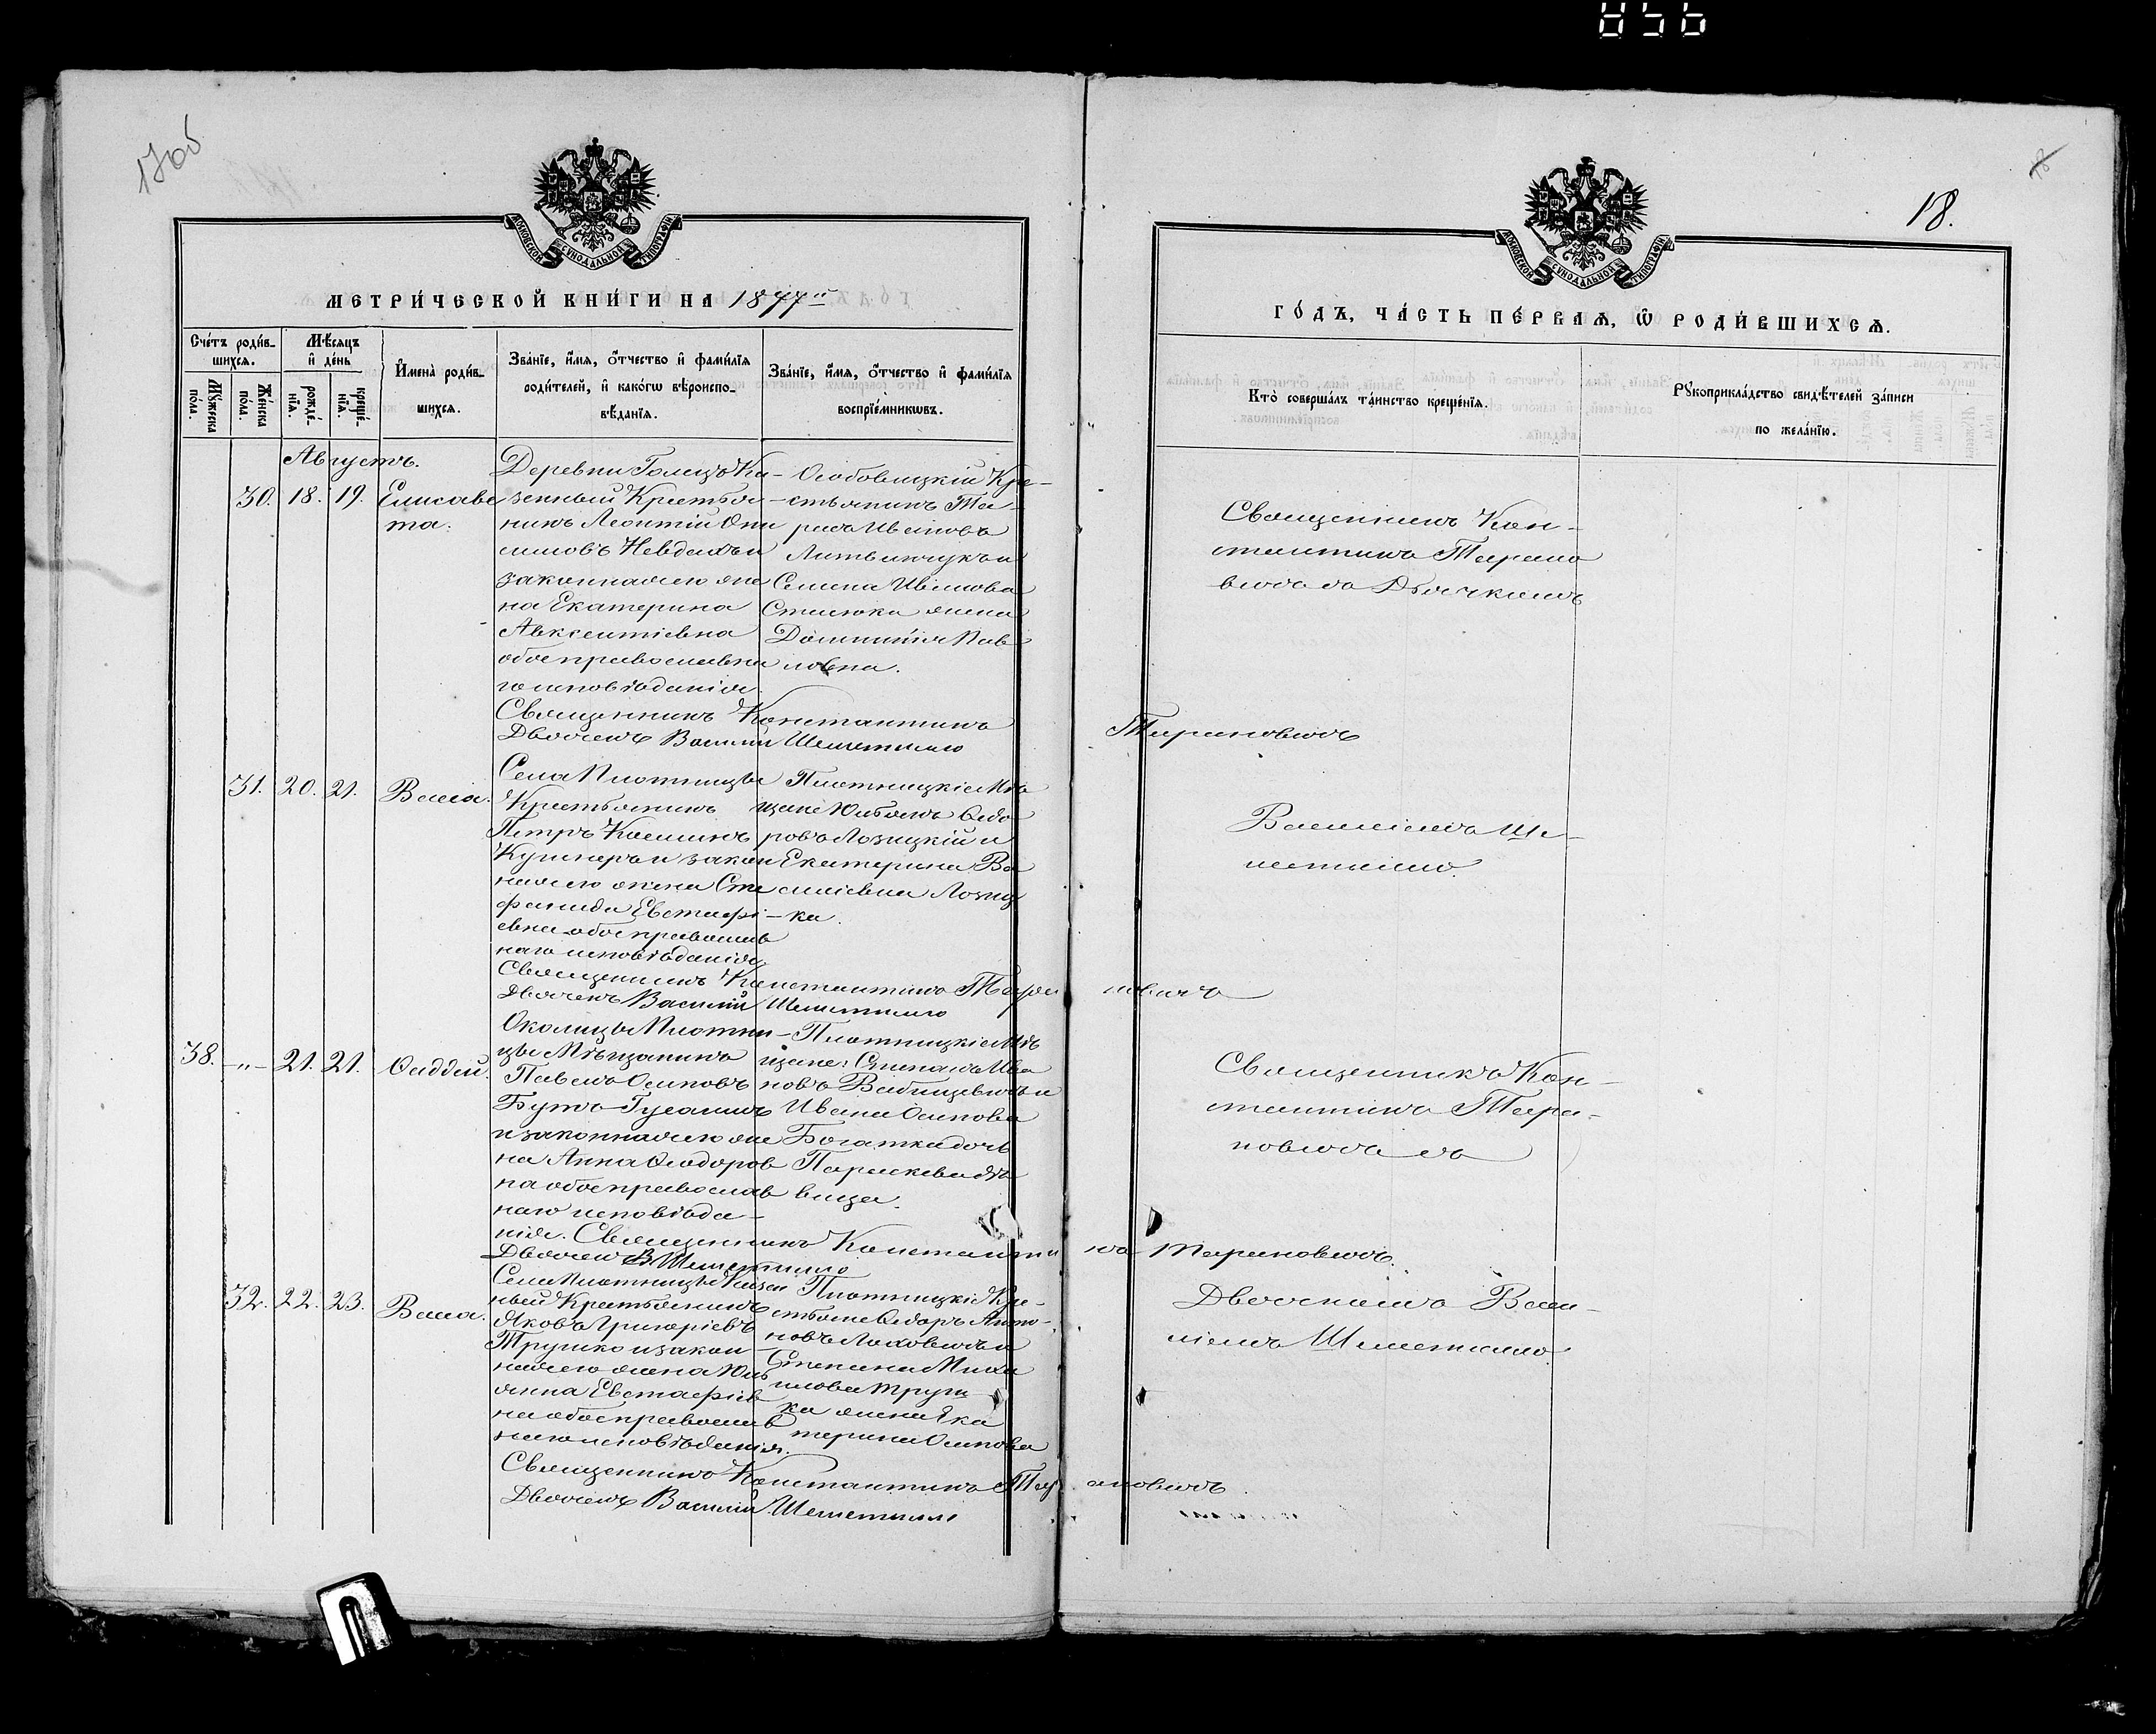 856
17об
18.
18
МОСКОВСКОЙ СѴНОДАЛЬНОЙ ТИПОГРАФІИ
МОСКОВСКОЙ СѴНОДАЛЬНОЙ ТИПОГРАФІИ
МЕТРИ́ЧЕСКОЙ КНИ́ГИ НА 1877й
ГО́ДЪ, ЧА́СТЬ ПЕ́РВАѦ, Ѽ РОДИ́ВШИХСѦ.
Сче́тъ роди́в-
шихсѧ.
Мѣ́сѧцъ
и҆ де́нь
Мꙋ́жеска по́ла.
Же́нска по́ла.
рожде́-нїѧ.
креще́-нїѧ.
И҆мена̀ роди́в-
шихсѧ.
Зва́нїе, и҆́мѧ, ѻ҆́тчество и҆ фами́лїѧ
роди́телей, и҆ како́гѡ вѣроиспо-
вѣ́данїѧ.
Зва́нїе, и҆́мѧ, ѻ҆́тчество и҆ фами́лїѧ
воспрїе́мникѡвъ.
Кто̀ соверша́лъ та́инство креще́нїѧ.
Рꙋкоприкла́дство свидѣ́телей за́писи
по жела́нїю.
Августъ.
30. 18. 19. Елисаве
та.
Деревни Ка-
зенный Крестья-
нинъ Леонтій Они
симовъ и
законная его же
на Екатерина
Авксентіевна
обое православна
го исповѣданія.
Особовицкій Кре-
стьянинъ Та-
расъ Ивановъ
Литвинчукъ и
Семена Иванова
жена
Домникія Пав
ловна.
Священникъ Кон-
стантинъ Тарано
вичъ съ Дьячкомъ
Священникъ Константинъ Тарановичъ
Дьячекъ Василій Шеметилло
31. 20. 21. Васса.
Села Плотницы
Крестьянинъ
Петръ Косминъ
Кушнеръ и закон
ная его жена Сте
фанида Евстафі-
евна обое православ
наго исповѣданія
Плотницкіе Мѣ
щане Юльянъ Ѳедо
ровъ Лозицкій и
Екатерина Ва
силіевна Лозиц
ка.
Василіемъ Ше-
метилло.
Священникъ Константинъ Тарановичъ
Дьячекъ Василій Шеметилло
38. -„- 21. 21. Ѳаддей.
Околицы Плотни-
цы Мѣщанинъ
Павелъ Осиповъ
Бутъ-Гусаимъ
и законная его же
на Анна Ѳеодоров
на обое православ
наго исповѣда-
нія.
Плотницкіе Мѣ
щане: Степанъ Ива
новъ Вабищевичъ и
Ивана Осипова
Богатка дочь
Параскева дѣ
вица.
Священникъ Кон-
стантинъ Тара-
новичъ съ
Священникъ Константинъ Тарановичъ.
Дьячекъ В. Шеметилло
32. 22. 23. Васса.
Села Плотницы Казен
ный Крестьянинъ
Яковъ Григоріевъ
Трушко и закон-
ная его жена Юль
янна Евстафіев
на обое православ
наго исповѣданія.
Плотницкіе Кре-
стьяне Ѳедоръ Анто-
новъ Лаховичъ и
Степана Миха
илова Труш-
ка жена Ека
терина Осипова
Дьячкомъ Васи-
ліемъ Шеметилло.
Священникъ Константинъ Тарановичъ.
Дьячекъ Василій Шеметилло